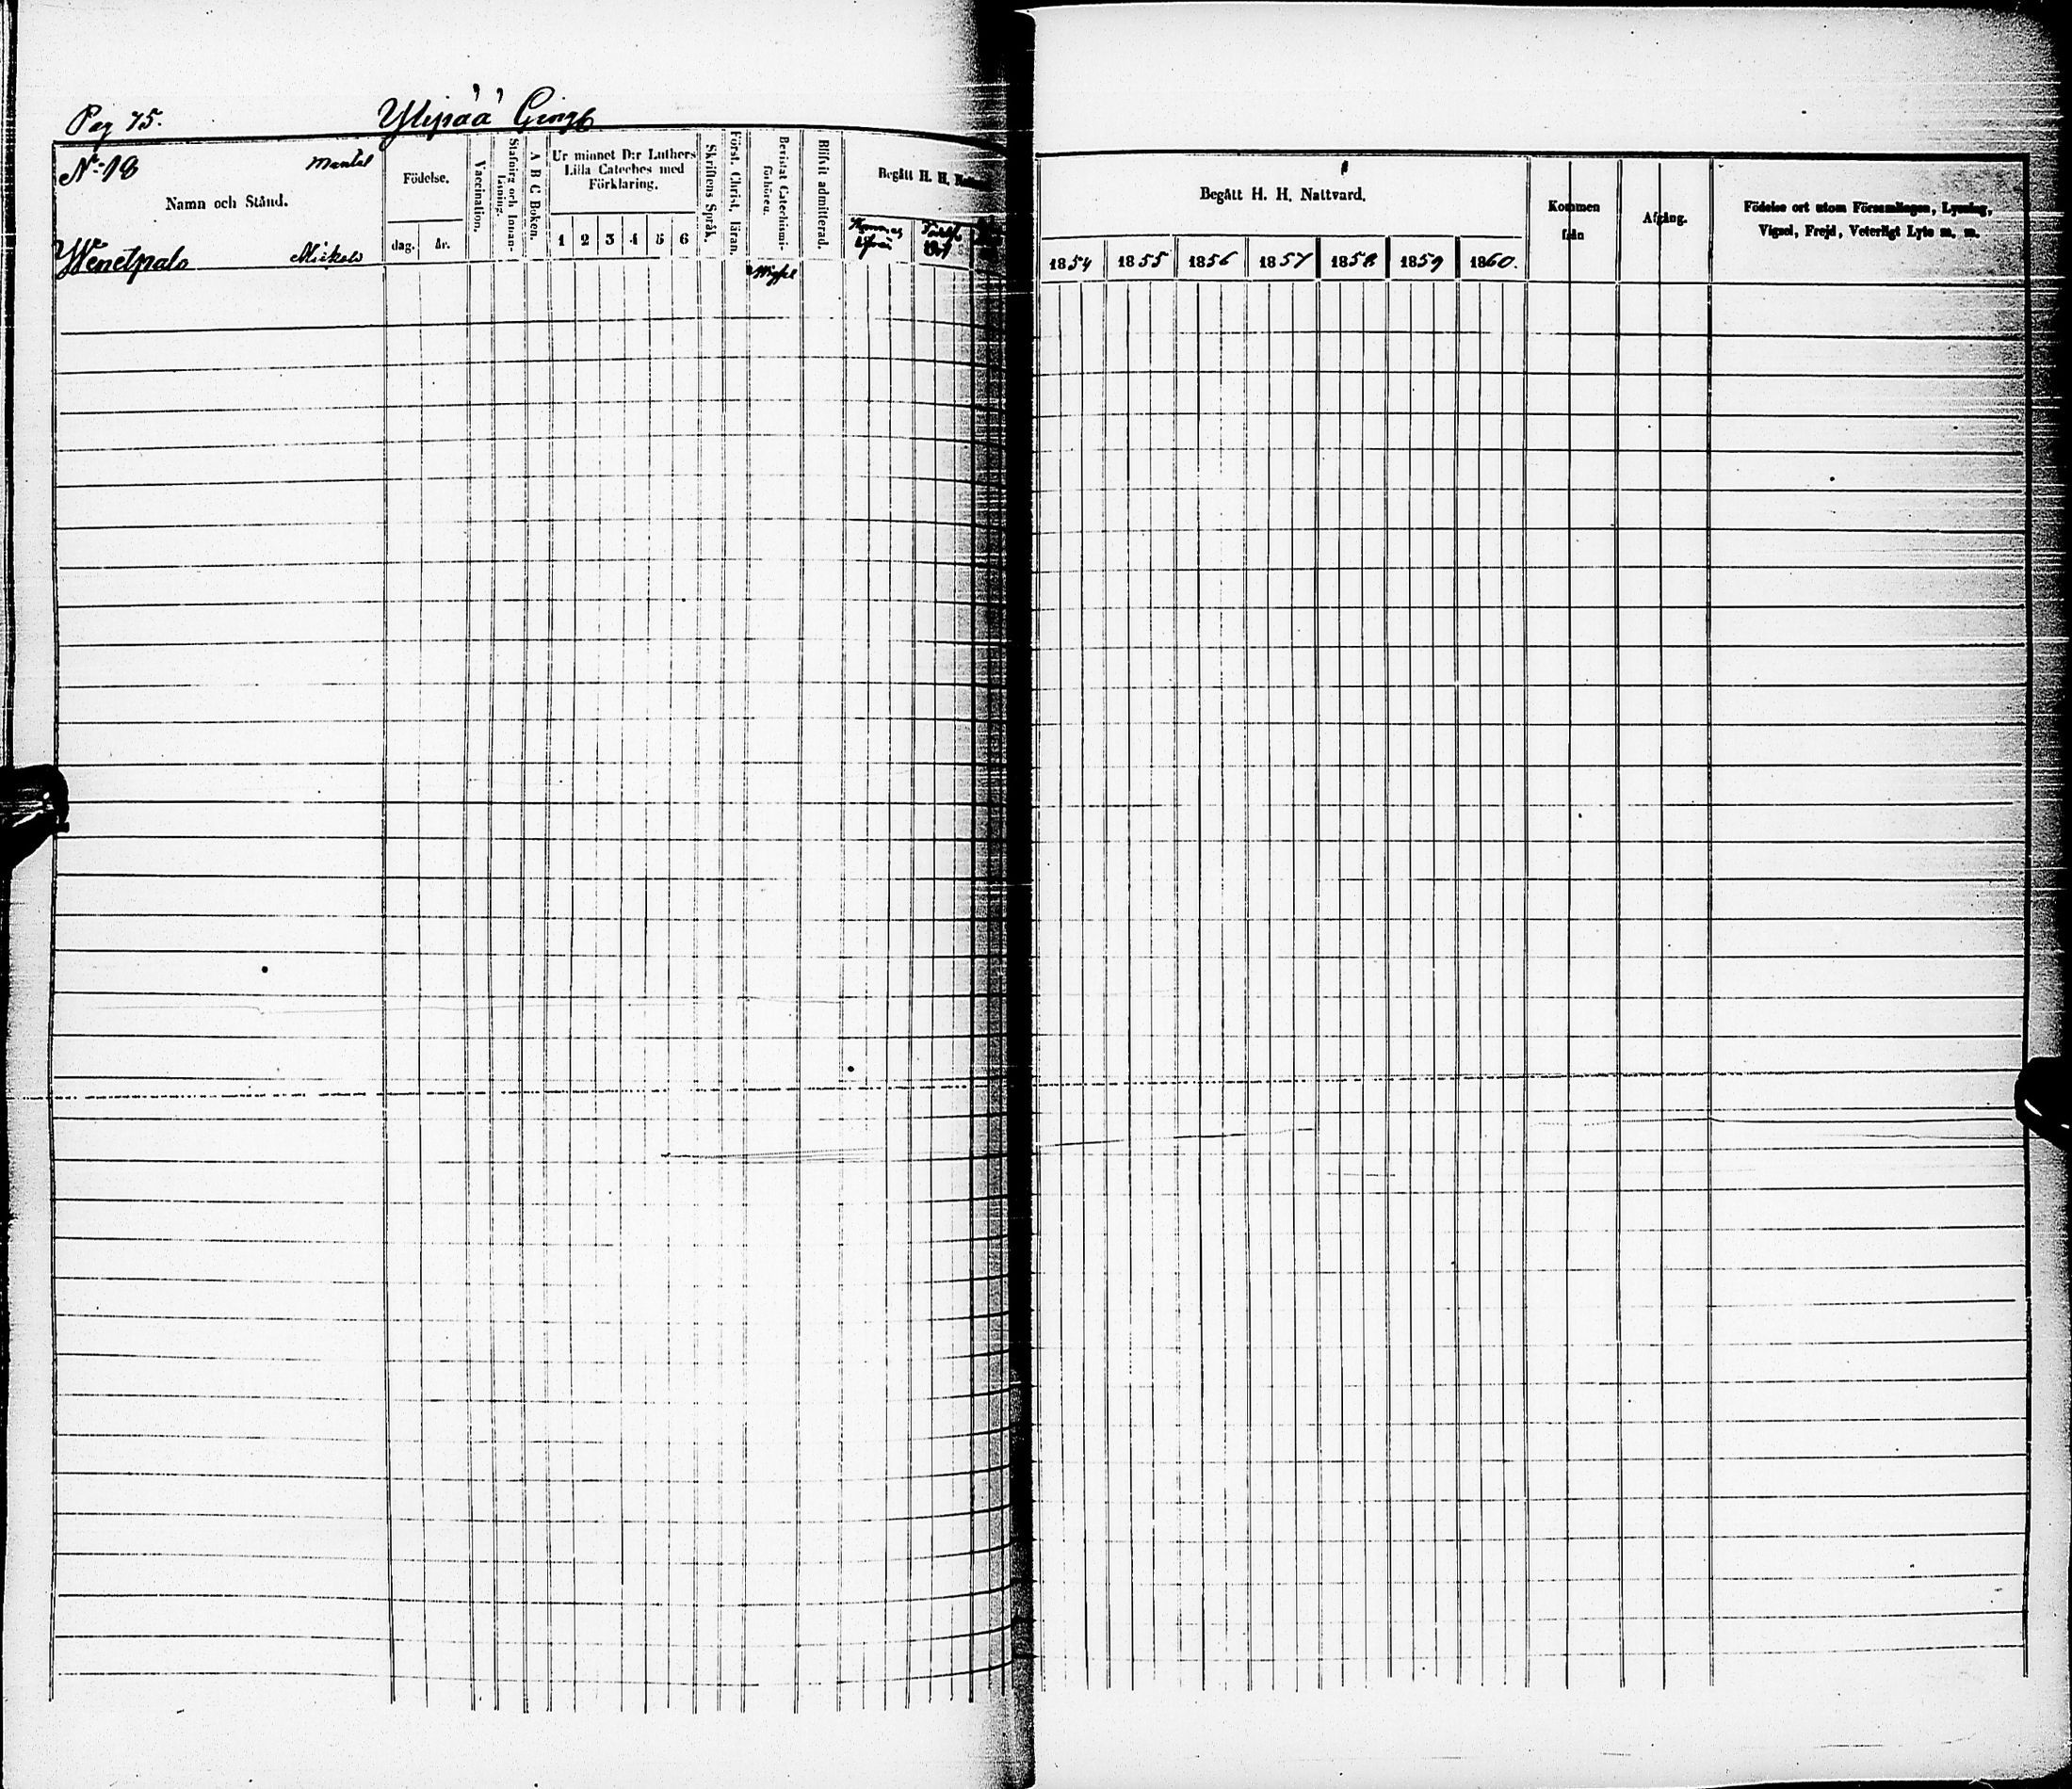 Pag 75.
Ylipää
N:o 18
Mantal
Namn och Stånd.
Wenetpalo
Födelse.
dag.
år.
Vaccination.
Stafning och Innan-
läsning.
A B C Boken.
Ur minnet D:r Luthers
Lilla Cateches med
Förklaring.
1 2 3 4 5 6
Skriftens Språk.
Först. Christ. läran.
Bevistat Catechismi-
förhören.
Blifvit admitterad.
Begått H. H.
Begått H. H. Nattvard.
1854 1855 1856 1857 1858 1859 1860.
Kommen
från
Afgång.
Födelse ort utom Församlingen, Lysning,
Vigsel, Frejd, Veterligt Lyte m. m.